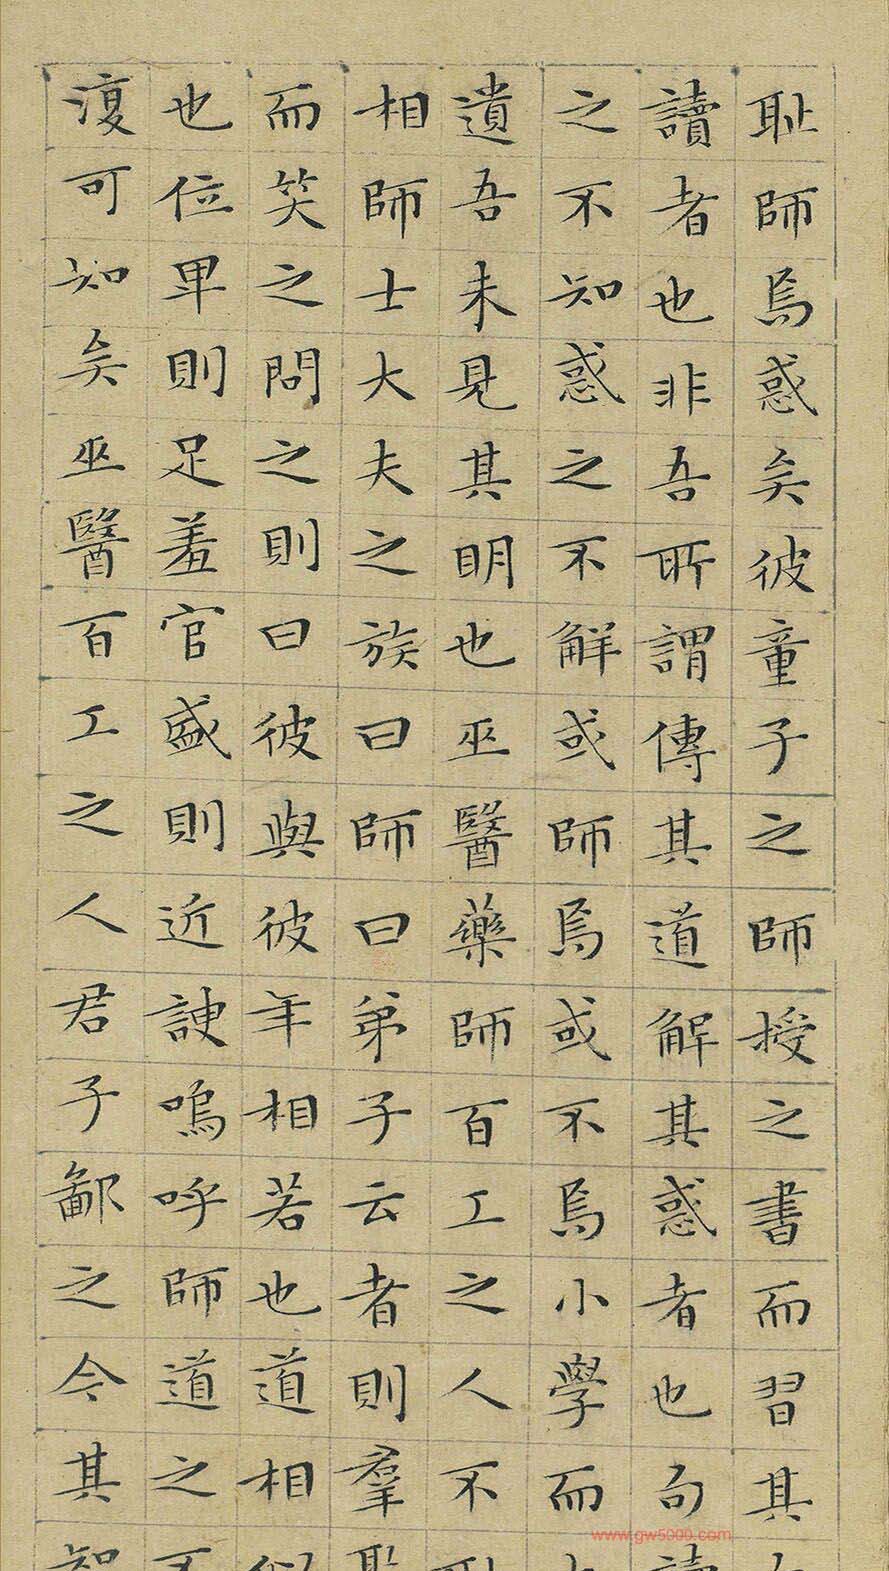 耻師焉惑矣彼童子之師授之書而習其
讀者也非吾所謂傳其道解其惑者也句讀
之不知惑之不解或師焉或不焉小學而
遺吾未見其明也巫醫藥師百工之人不
相師士大夫之族曰師曰弟子云者則羣聚
而笑之問之則曰彼與彼年相若也道相似
也位卑則足羞官盛則近諛嗚呼師道之不
復可知矣巫醫百工之人君子鄙之今其智
www.gw5000.com